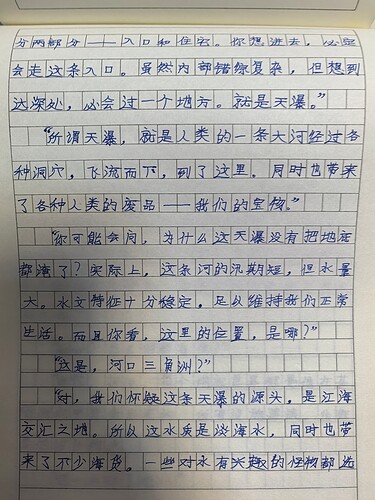 分两部分——入口和住宅。你想进去，必定
会走这条入口。虽然内部错综复杂，但想到
达深处，必会过一个地方。就是天瀑。”
“所谓天瀑，就是人类的一条大河经过各
种洞穴，飞流而下，到了这里。同时也带来
了各种人类的废品——我们的宝物。”
“你可能会问，为什么这天瀑没有把地底
都淹了？实际上，这条河的汛期短，但水量
大。水文特征十分稳定，足以维持我们正常
生活。而且你看，这里的位置，是哪？”
“这是，河口三角洲？”
“对，我们怀疑这条天瀑的源头，是江海
交汇之地。所以这水质是淡海水，同时也带
来了不少海货。一些对水有兴趣的怪物都选